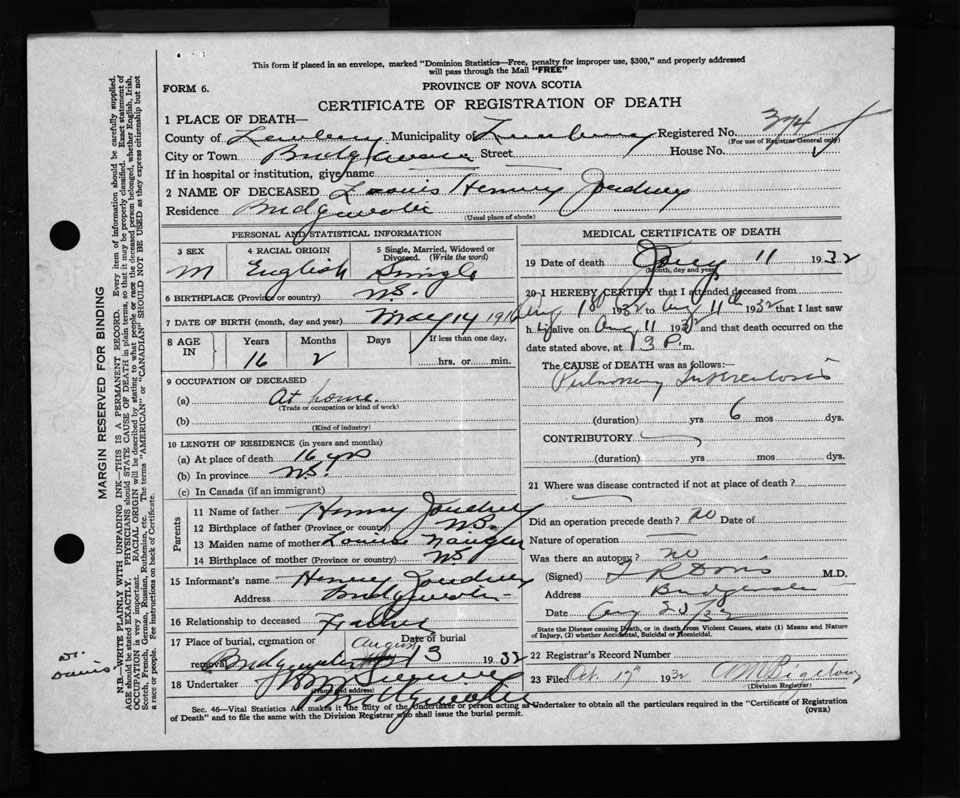 This form if placed in an envelope, marked "Dominion Statistics—Free, penalty for improper use, $300," and properly addressed
will pass through the Mail "FREE"
FORM 6. PROVINCE OF NOVA SCOTIA
CERTIFICATE OF REGISTRATION OF DEATH
1 PLACE OF DEATH—
County of Municipality of Lunenburg Registered No. 374
(For use of Registrar General only)
City or Town Bridgewater Street House No.
If in hospital or institution, give name
2 NAME OF DECEASED Louis Henry Joudrey
Residence Bridgewater
(Usual place of abode)
PERSONAL AND STATISTICAL INFORMATION
3 SEX 4 RACIAL ORIGIN 5 Single, Married, Widowed or
Divorced. (Write the word)
M English Single
6 BIRTHPLACE (Province or country) N.S.
7 DATE OF BIRTH (month, day and year) May 14 1916
8 AGE IN Years Months Days If less than one day,
16 2 hrs. or min.
9 OCCUPATION OF DECEASED
(a) At home.
(Trade or occupation or kind of work)
(b)
(Kind of industry)
10 LENGTH OF RESIDENCE (in years and months)
(a) At place of death 16 yrs
(b) In province N.S.
(c) In Canada (if an immigrant)
Parents
11 Name of father Henry Joudrey
12 Birthplace of father (Province or county) N.S.
13 Maiden name of mother Louise Naugler
14 Birthplace of mother (Province or country) N.S.
15 Informant's name Henry Joudrey
Address Bridgewater
16 Relationship to deceased Father
17 Place of burial, cremation or removal Date of burial
Bridgewater August 13 1932
18 Undertaker
(Name and address)
Bridgewater
MEDICAL CERTIFICATE OF DEATH
19 Date of death 11 1932
(Month, day and year)
20 I HEREBY CERTIFY that I attended deceased from
Aug 1st 1932 to Aug 11th 1932 that I last saw
h alive on Aug 11 1932 and that death occurred on
date stated above, at 3 P.m.
The CAUSE of DEATH was as follows:—
Pulmonary Tuberculosis
(duration) yrs 6 mos dys.
CONTRIBUTORY
(duration) yrs mos dys.
21 Where was disease contracted if not at place of death?
Did an operation precede death? no Date of
Nature of operation
Was there an autopsy? no
(Signed) M.D.
Address Bridgewater
Date Aug
State the Disease causing Death, or in death from Violent Causes, state (1) Means and Nature
of Injury, (2) whether Accidental, Suicidal or Homicidal.
22 Registrar's Record Number
23 Filed Oct. 17th 1932
(Division Registrar)
Sec. 46—Vital Statistics Act makes it the duty of the Undertaker or person acting as Undertaker to obtain all the particulars required in the "Certificate of Registration
of Death" and to file the same with the Division Registrar who shall issue the burial permit. (OVER)
MARGIN RESERVED FOR BINDING
N.B.—WRITE PLAINLY WITH UNFADING INK—THIS IS A PERMANENT RECORD. Every item of information should be carefully supplied.
AGE should be stated EXACTLY. PHYSICIANS should STATE CAUSE OF DEATH in plain terms, so that it may be properly classified. Exact statement of
OCCUPATION is very important. RACIAL ORIGIN will be described by stating to what people or race the deceased person belonged, whether English, Irish,
Scotch, French, German, Russian, Ruthenian, etc. The terms "AMERICAN" or "CANADIAN" SHOULD NOT BE USED as they express citizenship but not
a race or people. See instructions on back of Certificate.